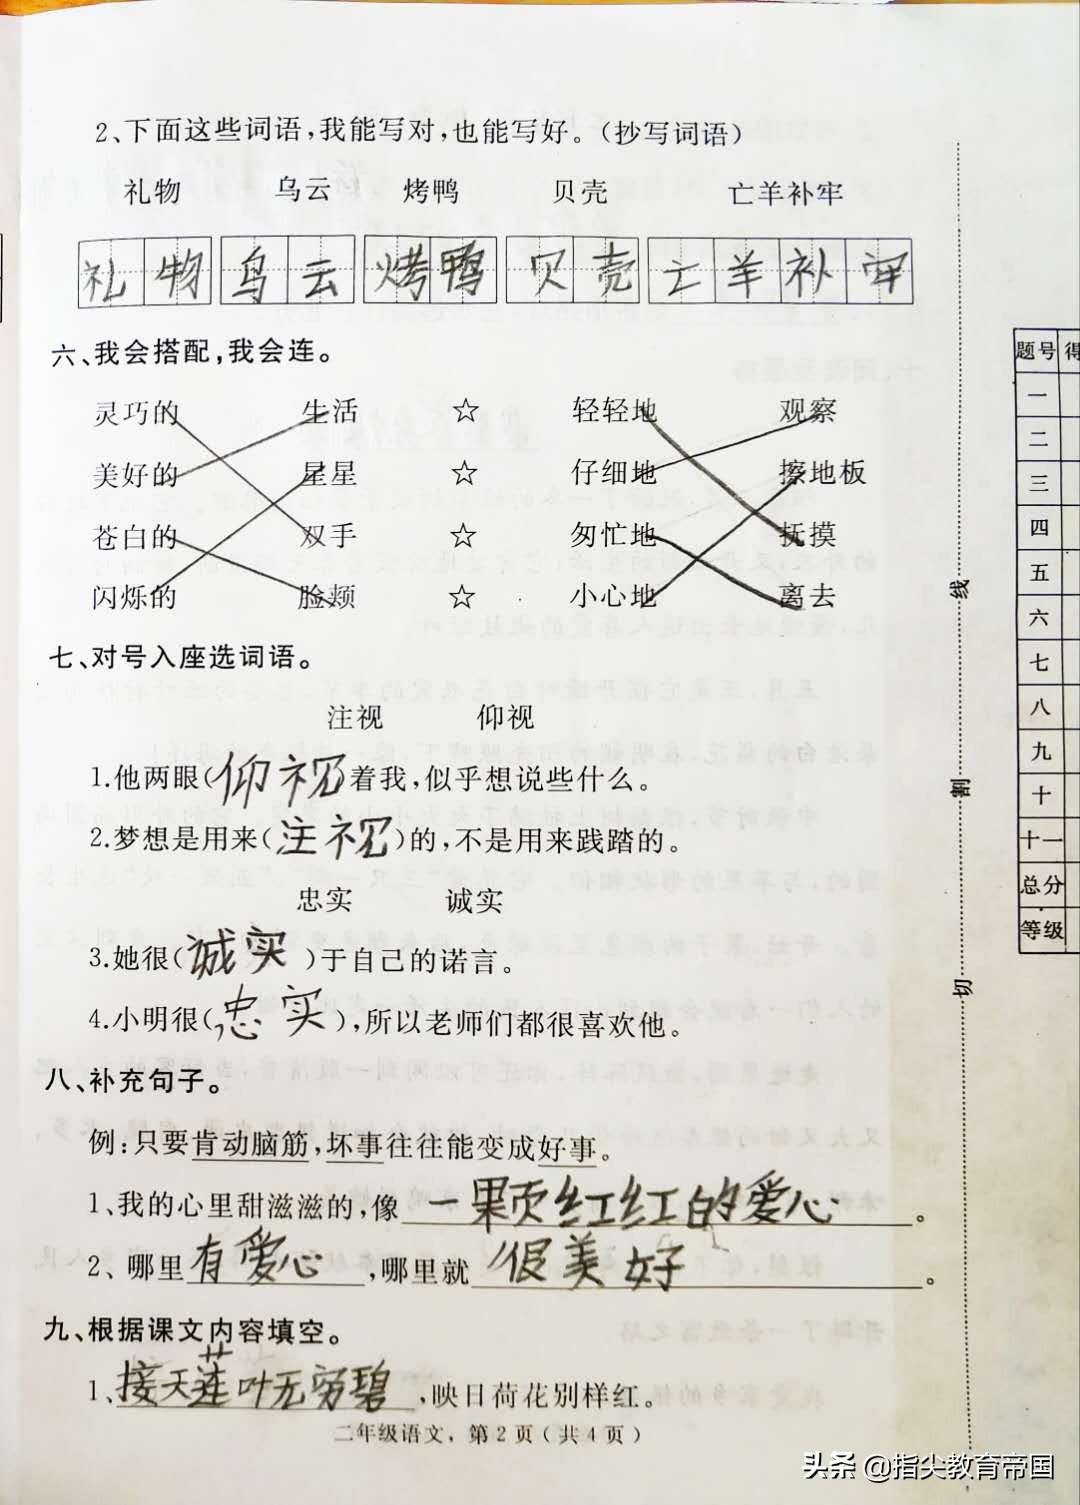 2、下面这些词语,我能写对,也能写好。(抄写词语)
礼物 乌云 烤鸭 贝壳 亡羊补牢
礼物 乌云 烤鸭 贝壳 亡羊补牢
六、我会搭配,我会连。
灵巧的 生活 ☆ 轻轻地 观察
美好的 星星 ☆ 仔细地 擦地板
苍白的 双手 ☆ 匆忙地 抚摸
闪烁的 脸颊 ☆ 小心地 离去
七、对号入座选词语。
注视 仰视
1.他两眼(仰视)着我,似乎想说些什么。
2.梦想是用来(注视)的,不是用来践踏的。
忠实 诚实
3.她很(诚实)于自己的诺言。
4.小明很(忠实),所以老师们都很喜欢他。
八、补充句子。
例:只要肯动脑筋,坏事往往能变成好事。
1、我的心里甜滋滋的,像一颗红红的爱心。
2、哪里有爱心,哪里就很美好。
九、根据课文内容填空。
1、接天莲叶无穷碧,映日荷花别样红。
二年级语文,第2页(共4页)
线
割
切
题号 得
一
二
三
四
五
六
七
八
九
十
十一
总分
等级
头条 @指尖教育帝国